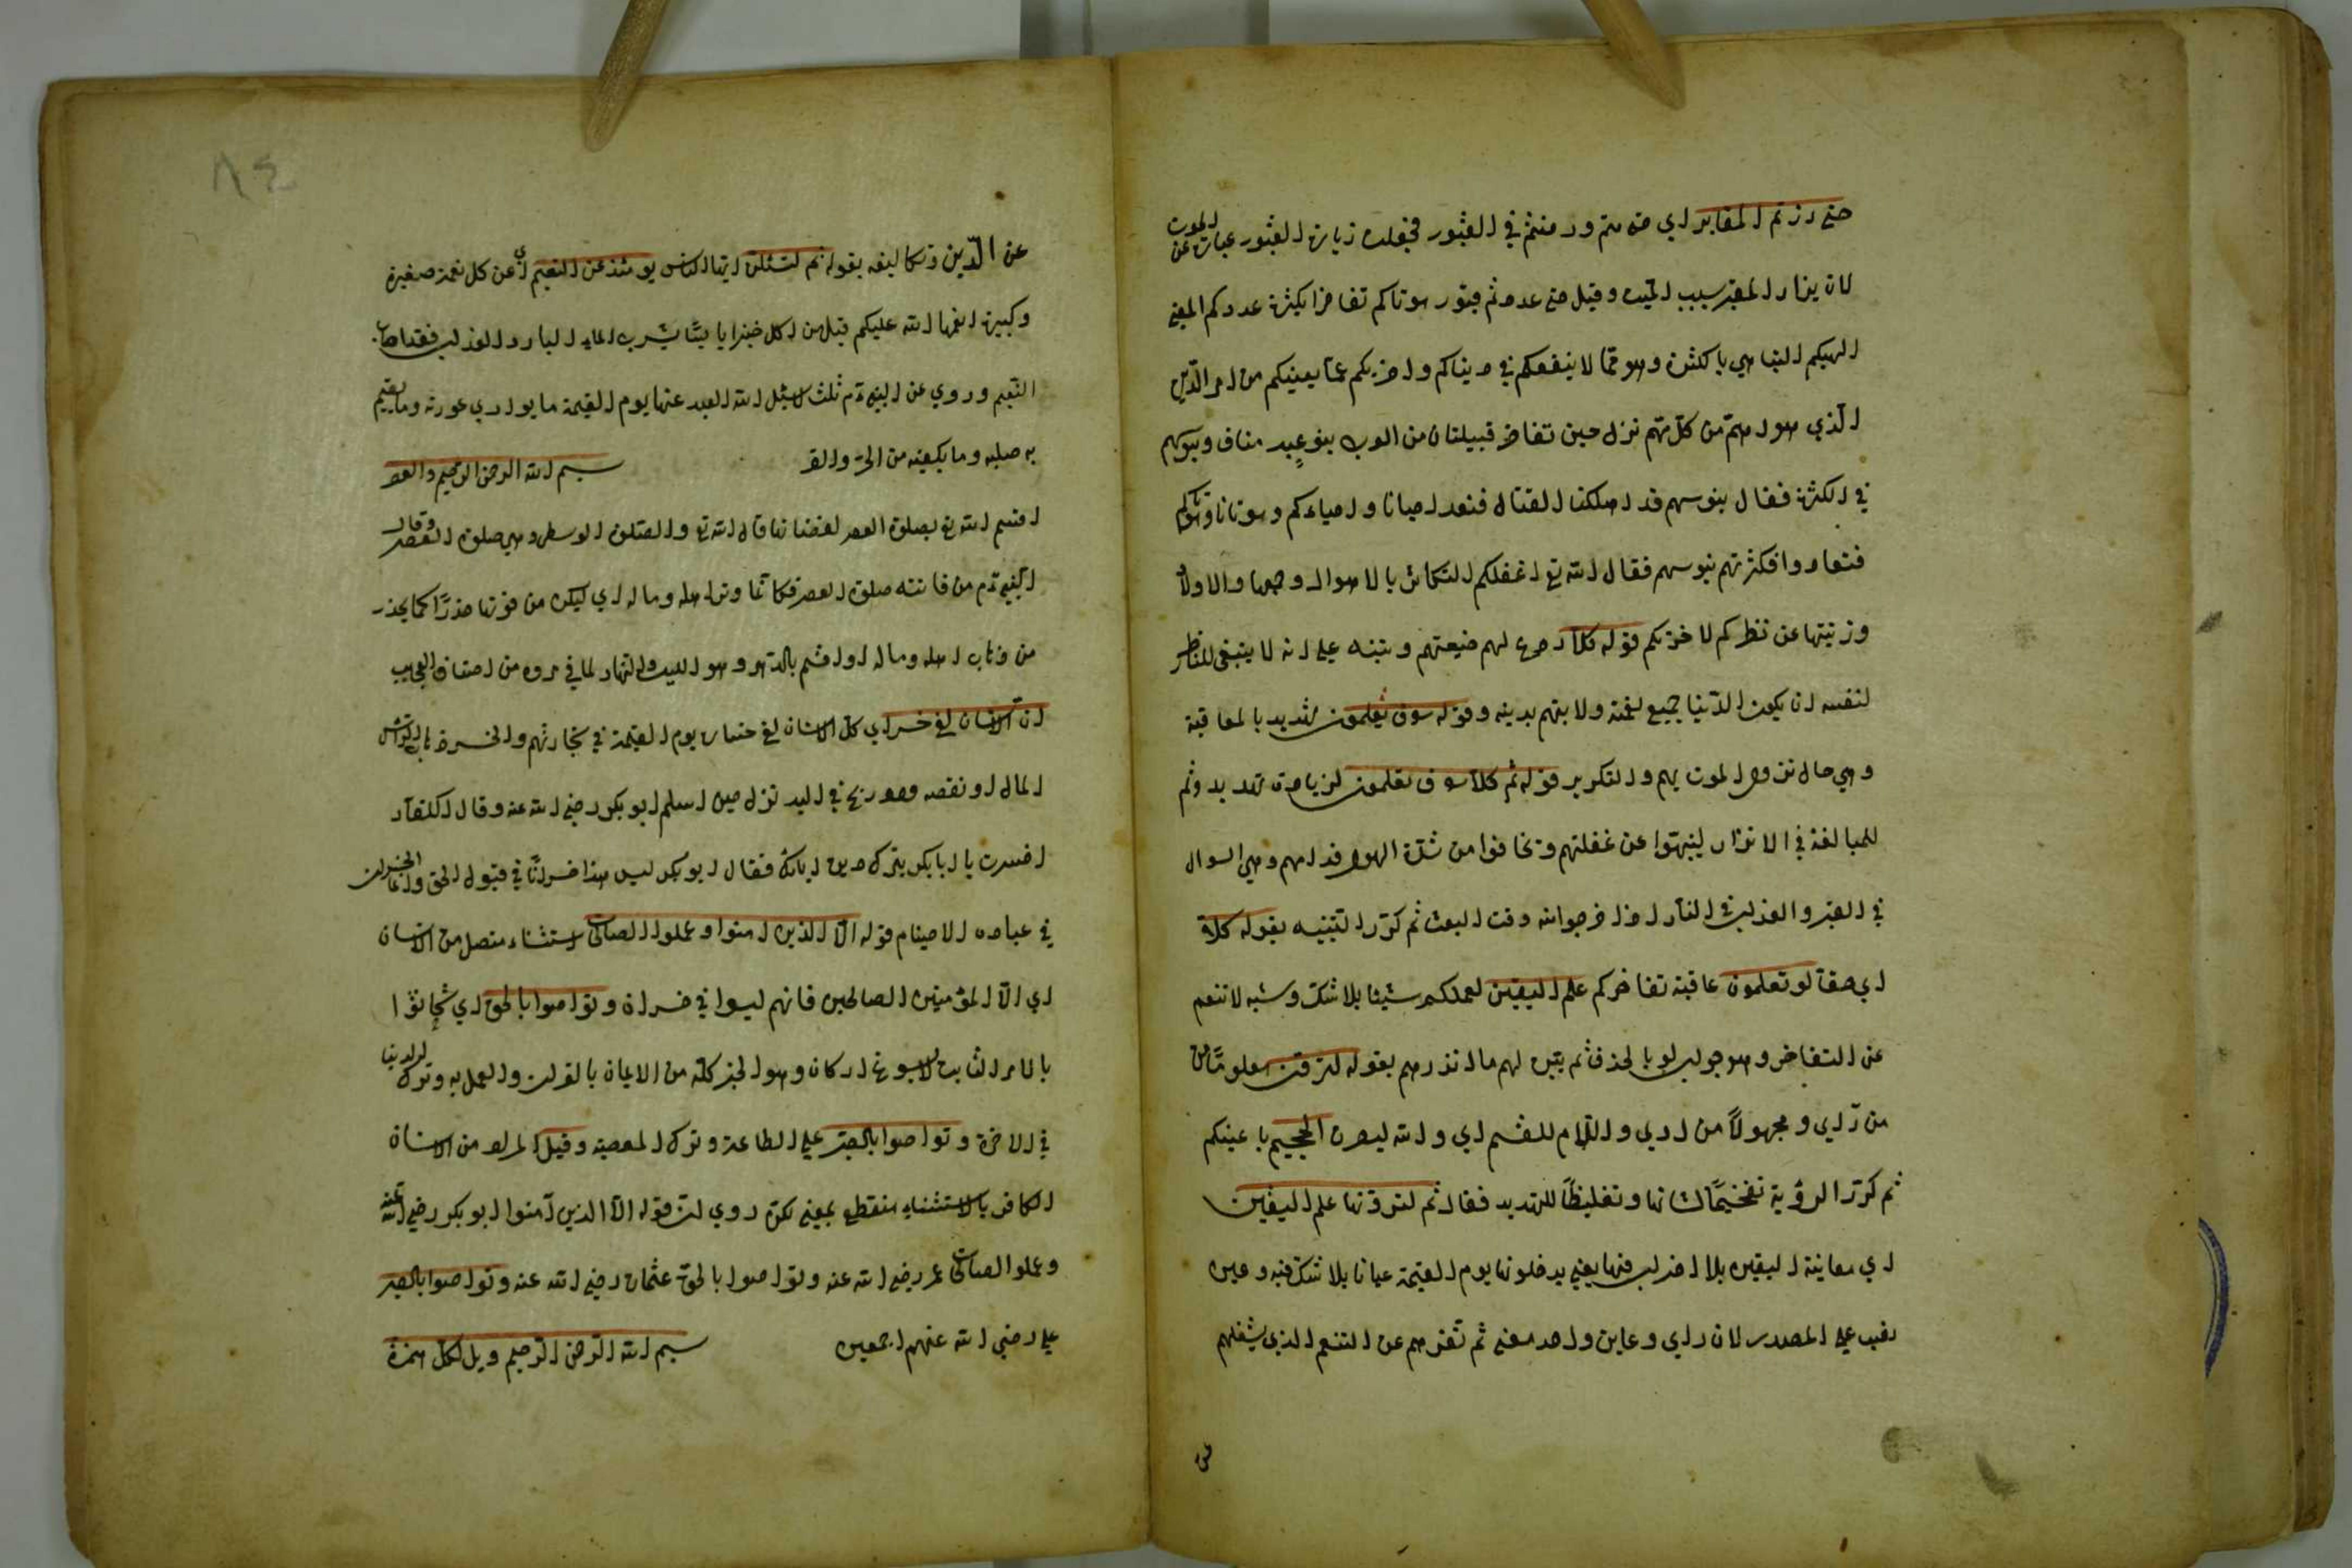 حتى زرتم المقابر اي حتى متم ودفنتم في القبور فجعلت زيارة القبور عبارة عن الموت
لان يزار المقبر بسبب الميت وقيل حتى عددتم قبور موتاكم تفاخرا بكثرة عددكم المعنى
الهيكم التباهي بالكثرة وهو مما لا ينفعكم في دينكم واخريكم عما يعنيكم من امر الدين
الذي هو اهم من كل مهم نزل حين تفاخر قبيلتان من العرب بنو عبد مناف وبنو سهم
في الكثرة فقال بنو سهم قد اهلكنا القتال فنعد احيانا واحياءكم وموتانا وموتاكم
فتعادوا فكثرتهم بنو سهم فقال الله تع اغفلكم التكاثر بالاموال وجمعها والاولاد
وزينتها عن نظركم لاخريكم قوله كلا ردع لهم ضيعتهم وتنبيه على انه لا ينبغي للناظر
لنفسه ان يكون الدنيا جميع لهمته ولا يهتم بدينه وقوله سوف تعلمون تهديد بالمعاقبة
وهي حال نزول الموت بهم والتكرير قوله ثم كلا سوف تعلمون لزيادة تهديد وثم
للمبالغة في الانذار لينبهوا عن غفلتهم وتخافوا من شدة الهول قدامهم وهي السوال
في القبر والعذاب في النار اذا خرجوا منه وقت البعث ثم كرر التنبيه بقوله كلا
اي حقا لو تعلمون عاقبة تفاخركم علم اليقين لعملكم شيئا بلا شك وشبه لا تنعم
عن التفاخر وهو جواب لو بالحذف ثم يبين لهم ما انذرهم بقوله لترون معلوما من
من راي ومجهولا من اري واللام للقسم اي والله ليرون الجحيم باعينكم
ثم كرر الرؤية تفخيما لشانها وتغليظا للتهديد فقال ثم لترونها علم اليقين
اي معاينة اليقين بلا فيها يعني يدخلونها يوم القيمة عيانا بلا شك فيه وعين
نصب على المصدر لان راي وعاين واحد معنى ثم عن التنعم الذي يشغلهم
عن
٨٤
عن الدين وتكاليفه بقوله ثم لتسئلن ايها الناس يومئذ عن النعيم اي عن كل نعمة صغيرة
وكبيرة انعمها الله عليكم قيل من اكل خبزا يابسا يشرب الماء البارد العذب فقد اصاب
النعيم وروي عن النبي ءم ثلث لا يسئل الله العبد عنها يوم القيمة ما يواري عورته وما يقيم
به صلبه وما يكفيه من الحر والقر بسم الله الرحمن الرحيم والعصر
اقسم الله تع بصلوة العصر لفضلها قال الله تع والصلوة الوسطى وهي صلوة العصر وقال
النبي ءم من فاتته صلوة العصر فكانما وتر اهله وماله اي ليكن من فوتها حذرا كما يحذر
من ذهاب اهله وماله او اقسم بالدهر وهو الليل والنهار لما في مروره من اصناف العجايب
ان الانسان لفي خسر اي كل الانسان لفي خسار يوم القيمة في تجارتهم والخسر ذهاب رأس
المال او نقصه وهو ربح في اليد نزل حين اسلم ابو بكر رضي الله عنه وقال الكفار
اخسرت يا ابا بكر بترك دين ابائك فقال ابو بكر ليس هذا خسرانا في قبول الحق وانما الخسران
في عبادة الاصنام قوله الا الذين امنوا وعملوا الصالحات استثناء متصل من الانسان
اي الا المؤمنين الصالحين فانهم ليسوا في خسران وتواصوا بالحق اي تحاثوا
بالامر الثابت لا يسوغ انكاره وهو الخير كله من الايمان بالقران والعمل به وترك الدنيا
في الاخرة وتواصوا بالصبر على الطاعة وترك المعصية وقيل المراد من الانسان
الكافر بالاستثناء منقطع بمعنى لكن روي ان قوله الا الذين آمنوا ابو بكر رضي الله عنه
وعملوا الصالحات عمر رضي الله عنه وتواصوا بالحق عثمان رضي الله عنه وتواصوا بالصبر
علي رضي الله عنهم اجمعين بسم الله الرحمن الرحيم ويل لكل همزة